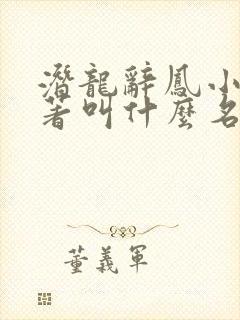 潛龍辭鳳小
著叫什麼名
董義軍